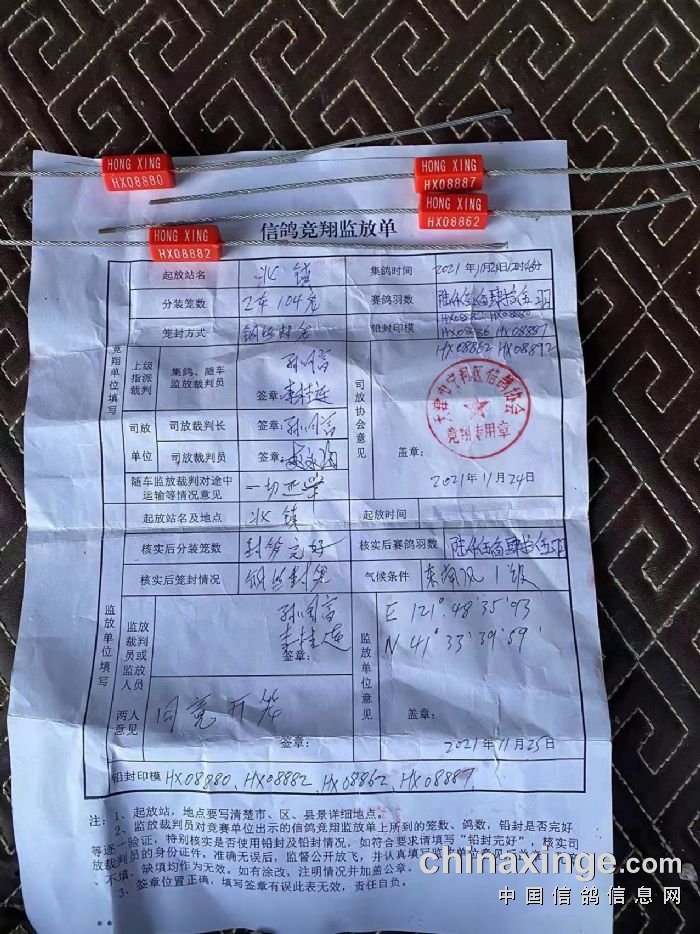 HONG XING
HX08880
HONG XING
HX08887
HONG XING
HX08862
HONG XING
HX08882
信鸽竞翔监放单
竞翔单位填写
起放站名 北镇 集鸽时间 2021年11月24日
分装笼数 2车104笼 赛鸽羽数
HX08882 HX08880
笼封方式 钢丝封笼 铅封印模 HX08886 HX08887
HX08862 HX08892
上级指派裁判 集鸽、随车监放裁判员 签章：
司放单位 司放裁判长 签章：
司放裁判员 签章：
司放协会意见 信鸽协会 竞翔专用章 盖章：
2021年11月24日
随车监放裁判对途中运输等情况意见 一切正常
监放单位填写
起放站名及地点 北镇 起放时间
核实后分装笼数 封笼完好 核实后赛鸽羽数
核实后笼封情况 钢丝封笼 气候条件 东南风1级
监放裁判员或监放人员 签章：
监放单位意见 E 121°.48′35′93
N 41°33′39′.59′
盖章：
2021年11月25日
两人意见 同意开笼 签章：
铅封印模 HX08880、HX08882、HX08862、HX08887、
注：1、起放站，地点要写清楚市、区、县景详细地点。
2、监放裁判员对竞赛单位出示的信鸽竞翔监放单上所到的笼数、鸽数，铅封是否完好
等逐一验证，特别核实是否使用铅封及铅封情况，如符合要求请填写“铅封完好”，核实司
放裁判员的身份证件，准确无误后，监督公开放飞，并认真填写
不填，缺填均作为无效。如有涂改，注明情况并加盖公章。
3、签章位置正确，填写签章有误此表无效，责任自负。
chinaxinge.com
中国信鸽信息网